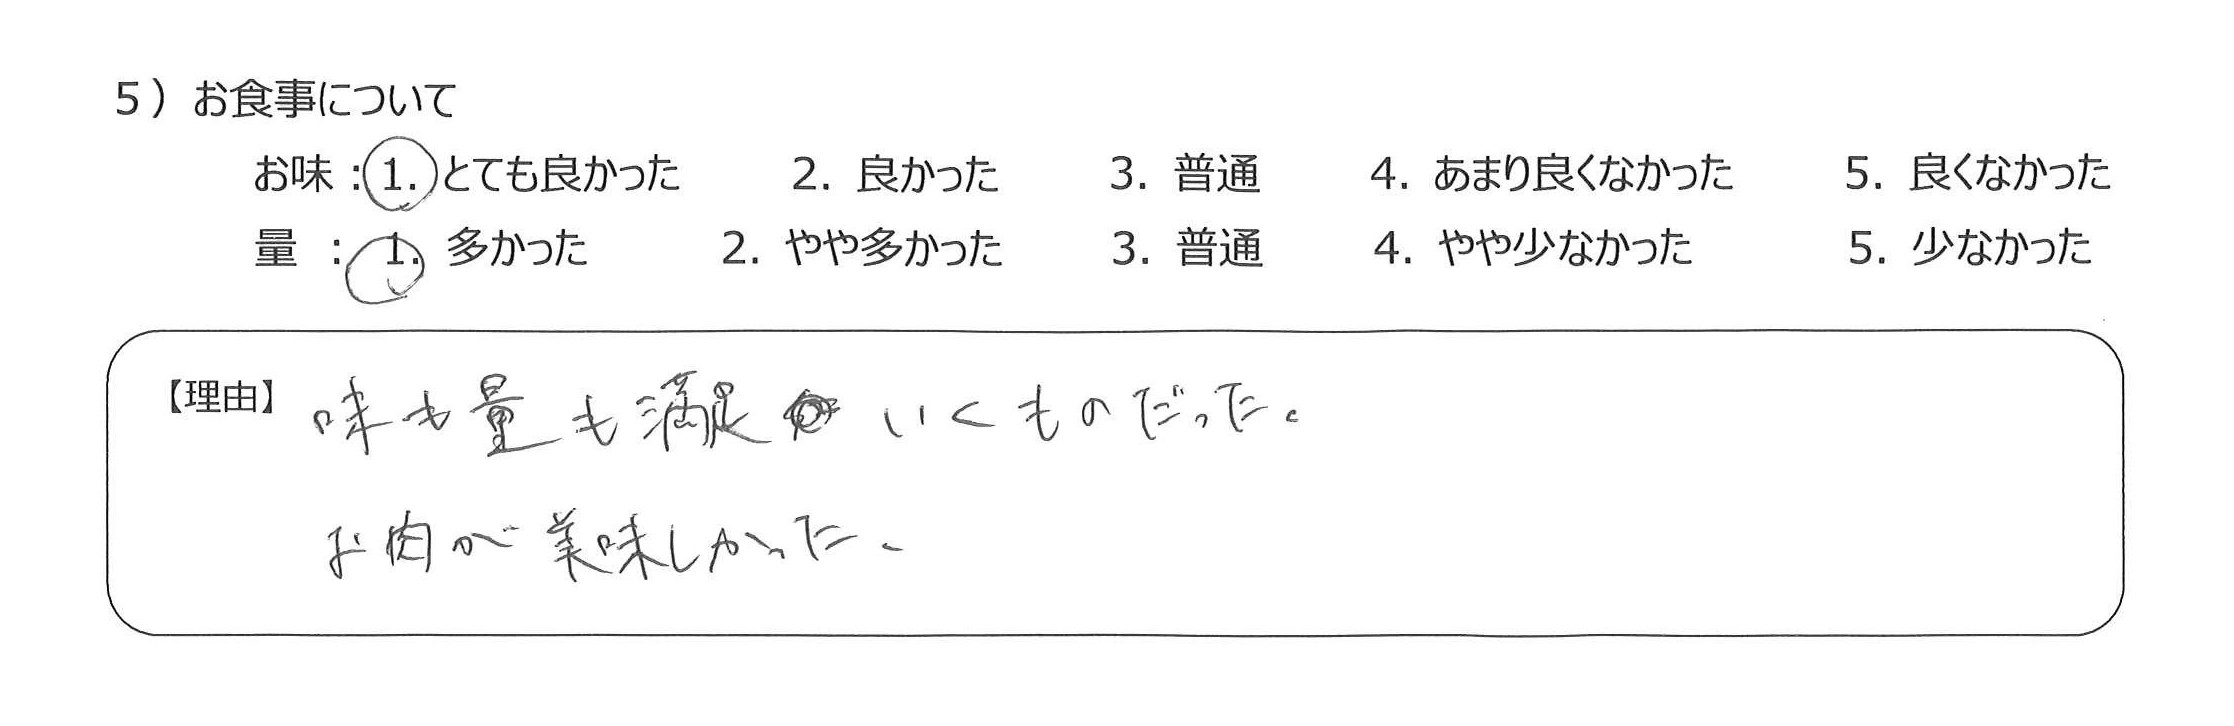 5）お食事について
お味：1. とても良かった 2. 良かった 3. 普通 4. あまり良くなかった 5. 良くなかった
量：1. 多かった 2. やや多かった 3. 普通 4. やや少なかった 5. 少なかった
【理由】味も量も満足いくものだった。
お肉が美味しかった。